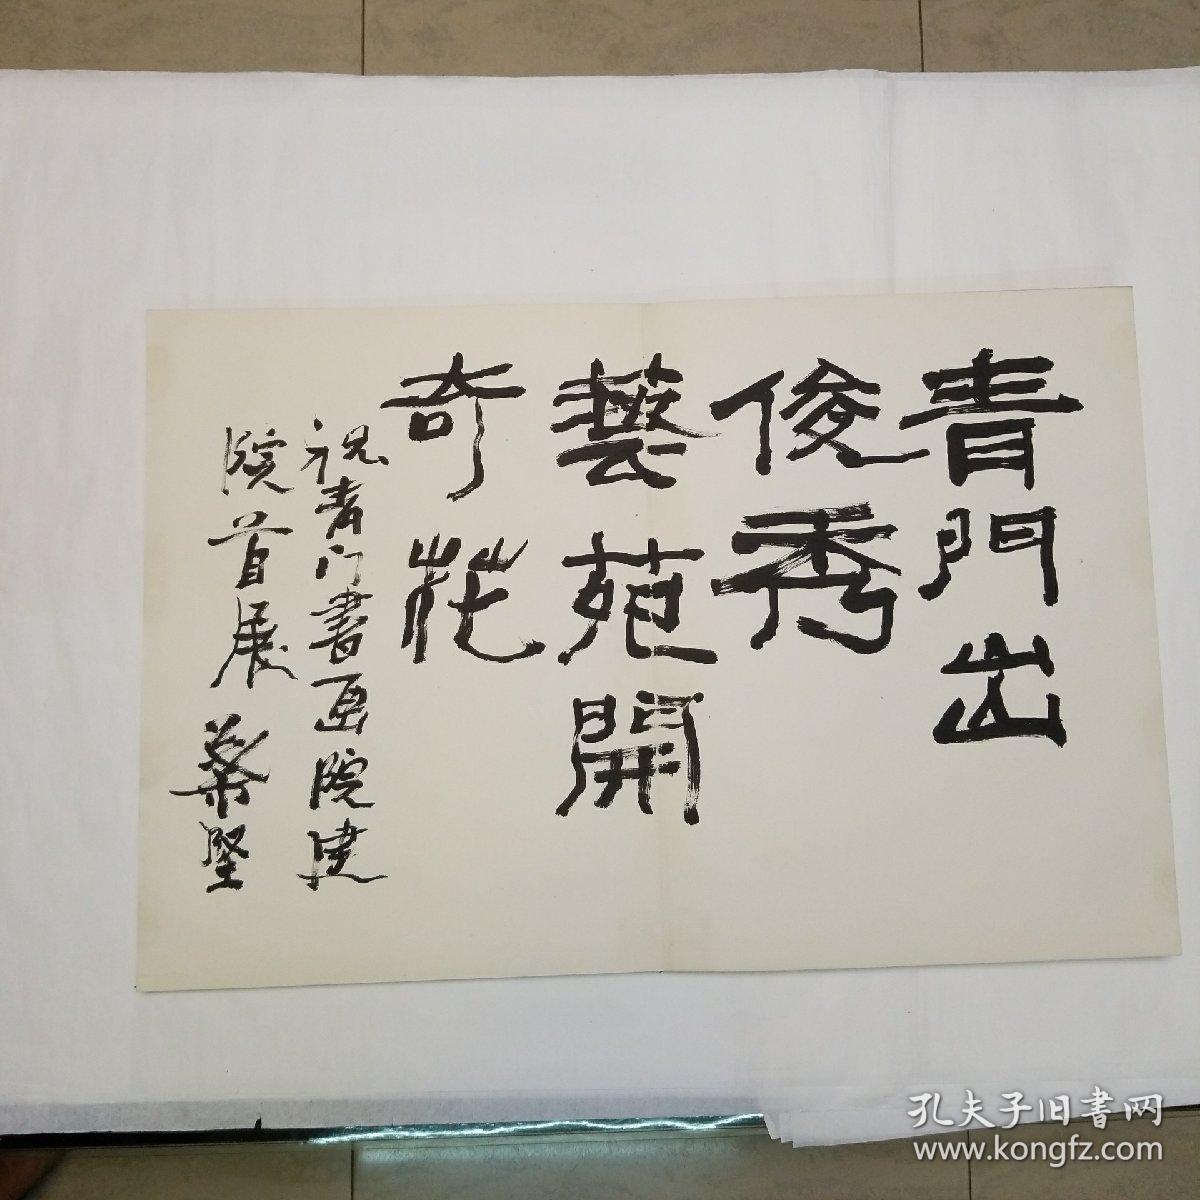 青門出
俊秀
藝苑開
奇花
祝青门書画院建
院首展
葉堅
孔夫子旧書网
www.kongfz.com